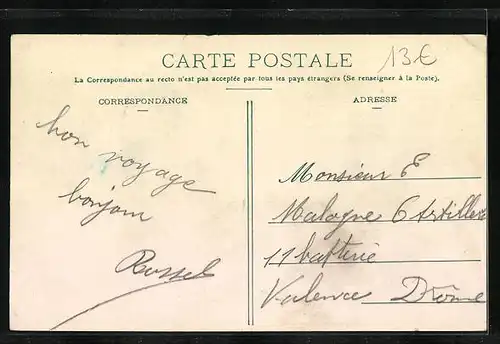 CARTE POSTALE
13€
La Correspondance au recto n'est pas acceptée par tous les pays étrangers (Se renseigner à la Poste).
CORRESPONDANCE
ADRESSE
bon voyage
bonjour
Roussel
Monsieur E
Malogne 6 Artillerie
11 batterie
Valence Drôme